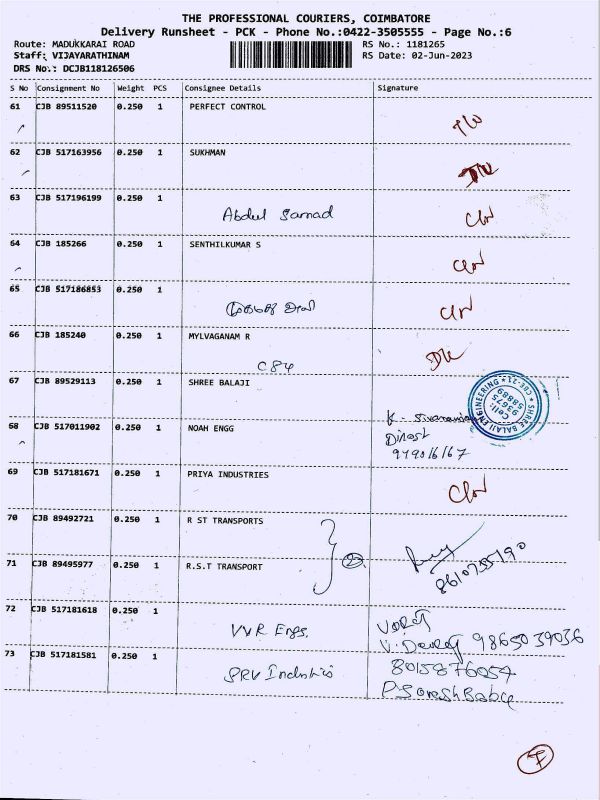 THE PROFESSIONAL COURIERS, COIMBATORE
Delivery Runsheet - PCK - Phone No.:0422-3505555 - Page No.:6
Route: MADUKKARAI ROAD RS No.: 1181265
Staff: VIJAYARATHINAM RS Date: 02-Jun-2023
DRS No.: DCJB118126506
S No Consignment No Weight PCS Consignee Details Signature
61 CJB 89511520 0.250 1 PERFECT CONTROL
62 CJB 517163956 0.250 1 SUKHMAN
63 CJB 517196199 0.250 1
Abdul Samad
64 CJB 185266 0.250 1 SENTHILKUMAR S
65 CJB 517186853 0.250 1
66 CJB 185240 0.250 1 MYLVAGANAM R
C84
67 CJB 89529113 0.250 1 SHREE BALAJI
SHREE BALAJI ENGINEERING ★ CBE-21 ★
Cell:
68 CJB 517011902 0.250 1 NOAH ENGG
69 CJB 517181671 0.250 1 PRIYA INDUSTRIES
70 CJB 89492721 0.250 1 R ST TRANSPORTS
71 CJB 89495977 0.250 1 R.S.T TRANSPORT
72 CJB 517181618 0.250 1
VVR Engs.
9865039036
73 CJB 517181581 0.250 1
SRV Industries
8015876054
P.SureshBabu
7